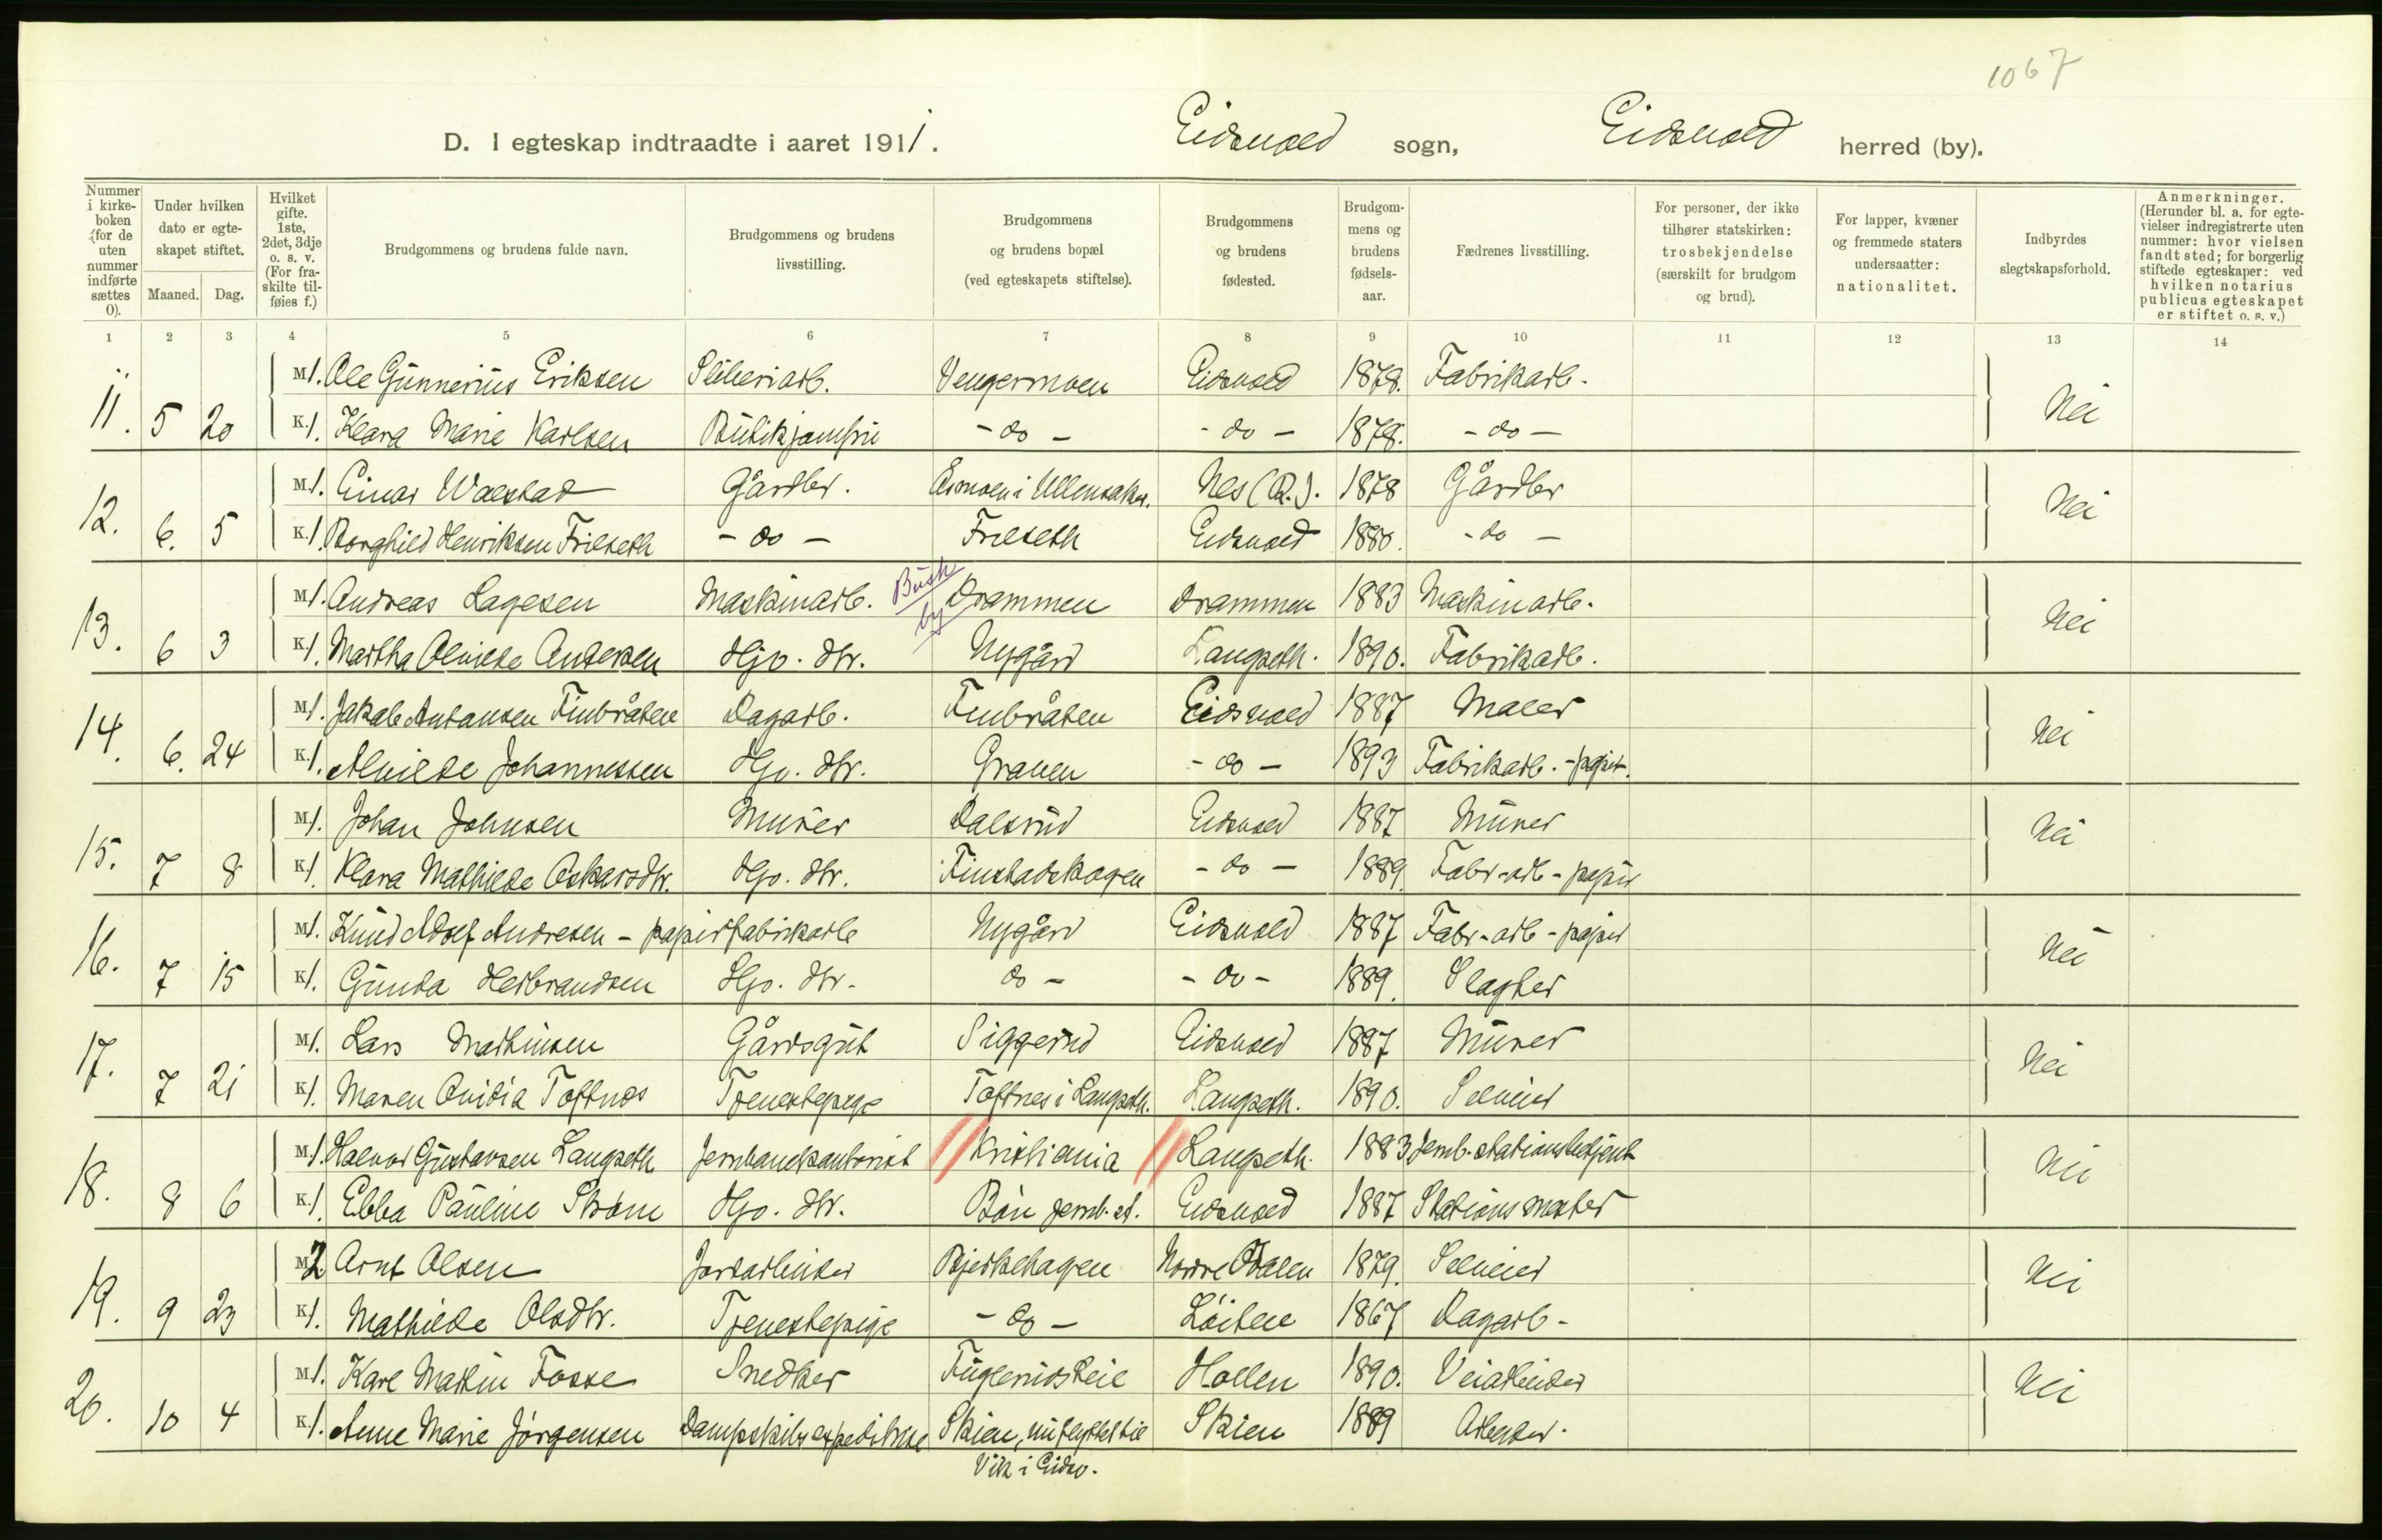 1067
D. I egteskap indtraadte i aaret 1911. Eidsvold sogn, Eidsvold herred (by).
Nummer i kirkeboken (for de uten nummer indførte sættes 0).
Under hvilken dato er egteskapet stiftet.
Maaned. Dag.
Hvilket gifte. 1ste, 2det, 3dje o. s. v. (For fraskilte tilføies f.)
Brudgommens og brudens fulde navn.
Brudgommens og brudens livsstilling.
Brudgommens og brudens bopæl (ved egteskapets stiftelse).
Brudgommens og brudens fødested.
Brudgommens og brudens fødselsaar.
Fædrenes livsstilling.
For personer, der ikke tilhører statskirken: trosbekjendelse (særskilt for brudgom og brud).
For lapper, kvæner og fremmede staters undersaatter: nationalitet.
Indbyrdes slegtskapsforhold.
Anmerkninger. (Herunder bl. a. for egtevielser indregistrerte uten nummer: hvor vielsen fandt sted; for borgerlig stiftede egteskaper: ved hvilken notarius publicus egteskapet er stiftet o. s. v.)
1 2 3 4 5 6 7 8 9 10 11 12 13 14
M 1. Ole Gunnerius Eriksen Sliberiarb. Vengermoen Eidsvold 1878. Fabrikarb.
11. 5 20 K 1. Klara Marie Karlsen Butikjomfru - do - - do - 1878. - do - Nei
M 1. Einar Wolstad Gårdbr. i Ullensaker. Nes (R.). 1878 Gårdbr
12. 6. 5 K 1. Borghild Henriksen Frilseth - do - Frilseth Eidsvold 1880. - do - Nei
Busk by
M 1. Andreas Lagesen Maskinarb. Drammen Drammen 1883 Maskinarb.
13. 6 3 K 1. Martha Olvilde Andersen Hjv. dtr. Nygård Langseth. 1890. Fabrikarb. Nei
M 1. Jakob Antonsen Finbråten Dagarb. Finbråten Eidsvold 1887 Maler
14. 6. 24 K 1. Alvilde Johannessen Hjv. dtr. Graven - do - 1893 Fabrikarb. - papir. Nei
M 1. Johan Johnsen Murer Dalsrud Eidsvold 1887 Murer
15. 7 8 K 1. Klara Mathilde Oskarsdtr. Hjv. dtr. Finstadskogen - do - 1889. Fabr-arb - papir Nei
M 1. Knud Adolf Andresen - papirfabrikarb Nygård Eidsvold 1887 Fabr-arb - papir
16. 7 15 K 1. Gunda Herbrandsen Hjv. dtr. do - - do - 1889. Slagter Nei
M 1. Lars Martinsen Gårdsgut Siggerud Eidsvold 1887 Murer
17. 7 21 K 1. Maren Ovidia Toftnes Tjenestepige Toftnes i Langseth. Langseth. 1890. Selveier Nei
M 1. Halvor Gustavsen Langseth Jernbanekontorist Kristiania Langseth. 1883 Jernb. stationsbetjent
18. 8 6 K 1. Ebba Pauline Strøm Hjv. dtr. Bøn jernb. st. Eidsvold 1887 Stationsmester Nei
M 2 Arnt Olsen Jordarbeider Bjerkehagen Nordre Odalen 1879. Selveier
19. 9 23 K 1. Mathilde Olsdtr. Tjenestepige - do - Löiten 1867 Dagarb - Nei
M 1. Karl Martin Fosse Snedker Fuglerudsteie Hollen 1890. Veiarbeider
20. 10 4 K 1. Anne Marie Jørgensen Dampskibsexpeditrise Skien, nu flyttet til Skien 1889 Arbeider. Nei
Vik i Eidsv.